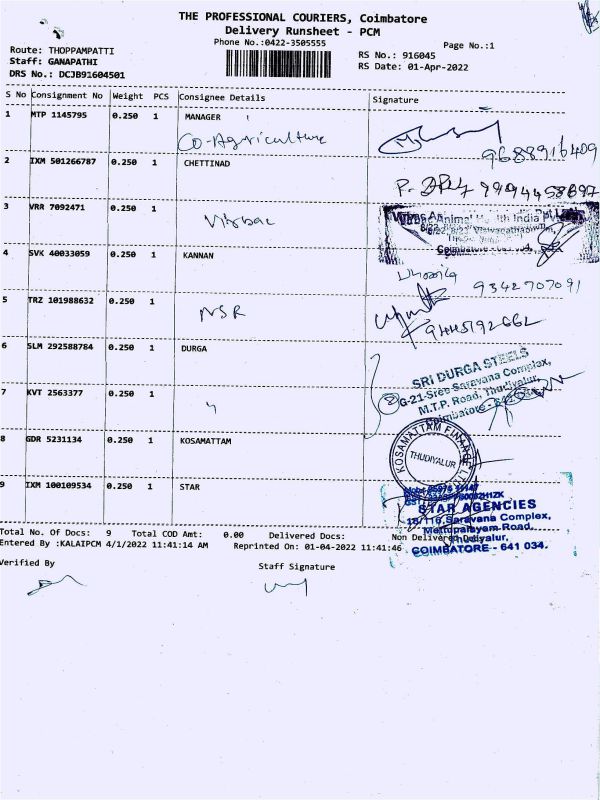 THE PROFESSIONAL COURIERS, Coimbatore
Delivery Runsheet - PCM
Phone No.:0422-3505555
Page No.:1
Route: THOPPAMPATTI
Staff: GANAPATHI
DRS No.: DCJB91604501
RS No.: 916045
RS Date: 01-Apr-2022
S No Consignment No Weight PCS Consignee Details Signature
1 MTP 1145795 0.250 1 MANAGER
Co-Agriculture
9688916409
2 IXM 501266787 0.250 1 CHETTINAD
9994458697
3 VRR 7092471 0.250 1
Virbac
Virbac Animal Health India Pvt Ltd
Coimbatore
4 SVK 40033059 0.250 1 KANNAN
9342707091
5 TRZ 101988632 0.250 1
NSR
6 SLM 292588784 0.250 1 DURGA
SRI DURGA STEELS
G-21-Sree Saravana Complex,
M.T.P. Road, Thudiyalur,
Coimbatore
7 KVT 2563377 0.250 1
"
8 GDR 5231134 0.250 1 KOSAMATTAM
KOSAMATTAM FINANCE
THUDIYALUR
9 IXM 100109534 0.250 1 STAR
STAR AGENCIES
16/116, Saravana Complex,
Mettupalayam Road,
Thudiyalur,
COIMBATORE - 641 034.
Total No. Of Docs: 9 Total COD Amt: 0.00 Delivered Docs: Non Delivered
Entered By :KALAIPCM 4/1/2022 11:41:14 AM Reprinted On: 01-04-2022 11:41:46
Verified By
Staff Signature